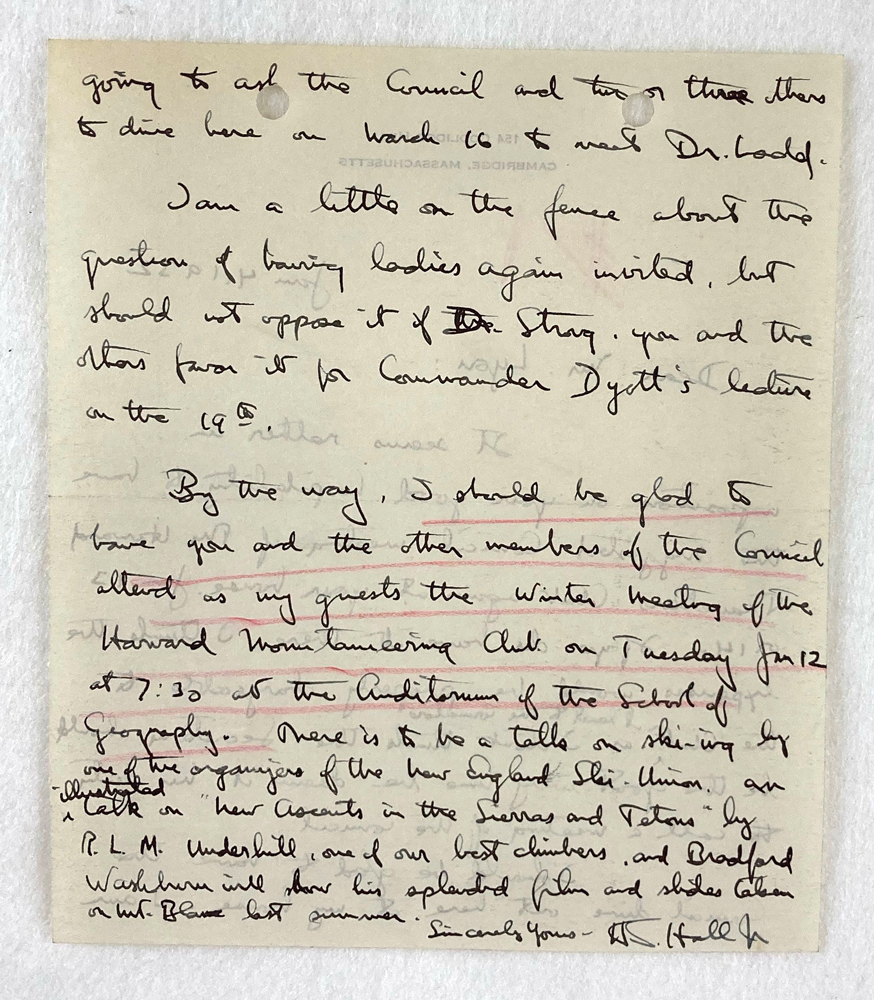 going to ask the Council and two or three others
to dine here on March 16 to meet Dr. Ladd.
I am a little on the fence about the
question of having ladies again invited, but
should not oppose it if Dr. Strong, you and the
others favor it for Commander Dyott's lecture
on the 19th.
By the way, I should be glad to
have you and the other members of the Council
attend as my guests the Winter Meeting of the
Harvard Mountaineering Club on Tuesday Jan 12
at 7:30 at the Auditorium of the School of
Geography. There is to be a talk on ski-ing by
one of the organizers of the New England Ski-Union, an
illustrated
talk on "New Ascents in the Sierras and Tetons" by
R. L. M. Underhill, one of our best climbers, and Bradford
Washburn will show his splendid film and slides taken
on Mt. Blanc last summer.
Sincerely Yours - H.S. Hall Jr